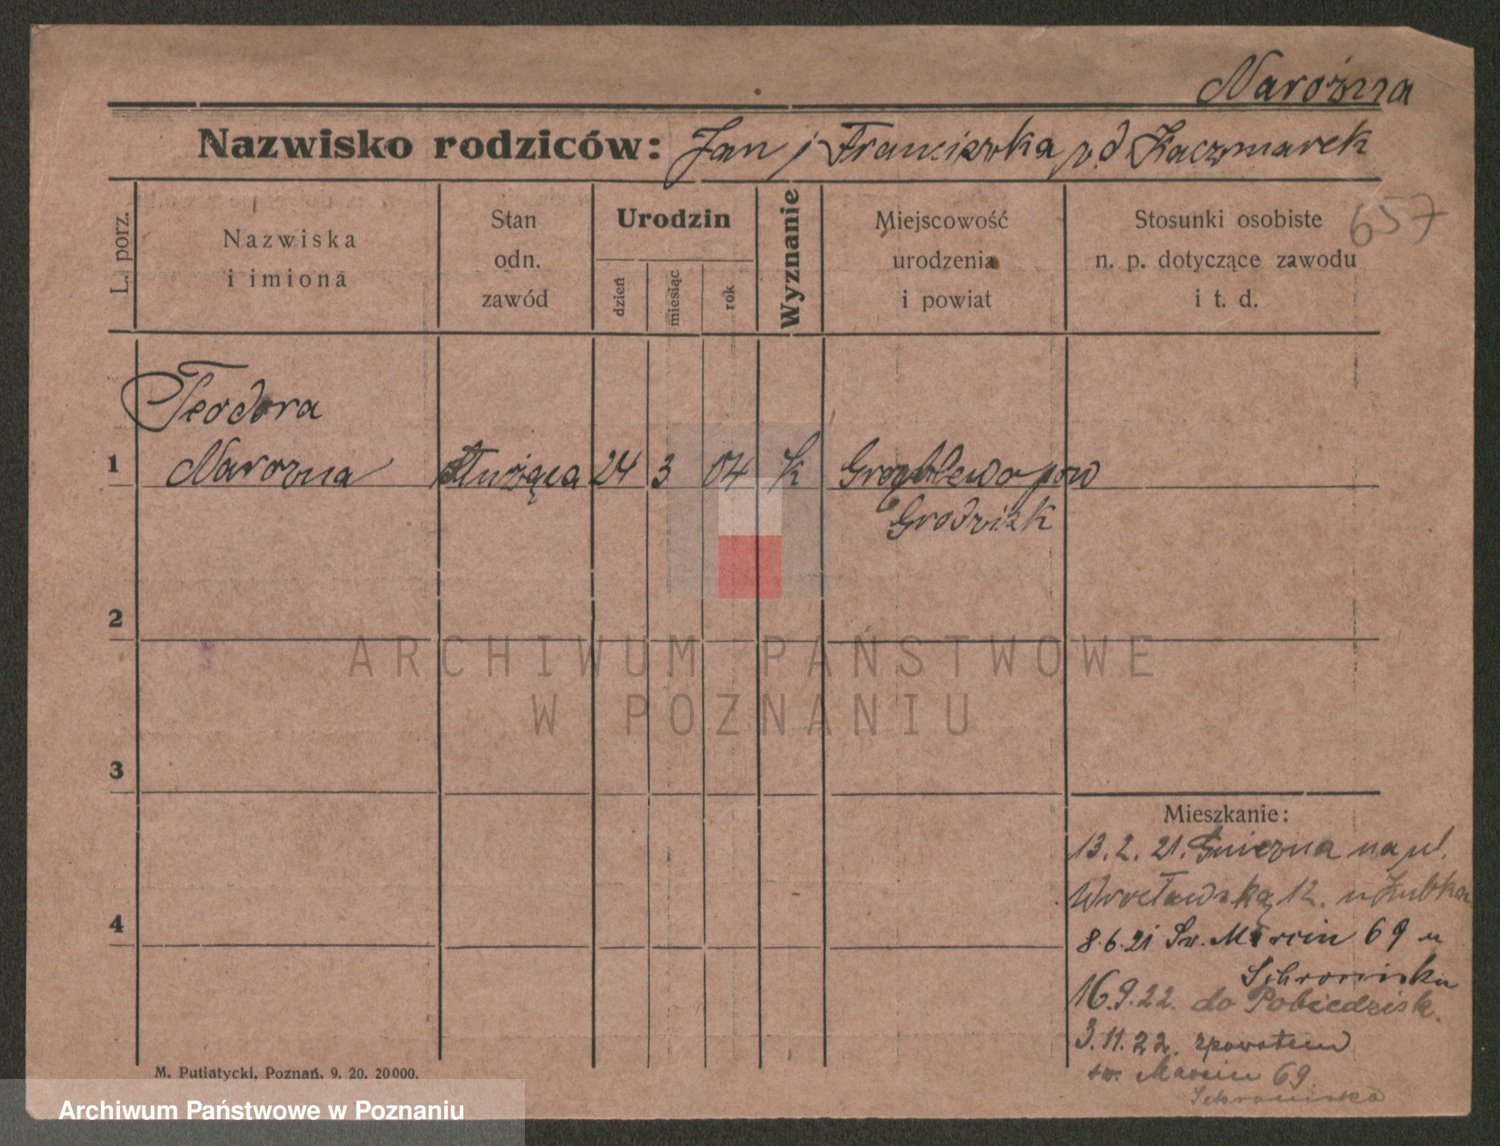 Narożna
Nazwisko rodziców: Jan i Franciszka z d. Kaczmarek
657
L. porz.
Nazwiska
i imiona
Stan
odn.
zawód
Urodzin
dzień
miesiąc
rok
Wyznanie
Miejscowość
urodzenia
i powiat
Stosunki osobiste
n. p. dotyczące zawodu
i t. d.
Teodora
1 Narozna służąca 24 3 04 k pow
Grodzisk
2
ARCHIWUM PAŃSTWOWE
W POZNANIU
3
Mieszkanie:
13. 2. 21. Gniezna na ul.
Wrocławską 12. u
4
8.6.21 Św. Marcin 69 u
16.9.22. do Pobiedzisk.
3.11.22. zpowotem
św. Marcin 69.
M. Putiatycki, Poznań. 9. 20. 20000.
Archiwum Państwowe w Poznaniu